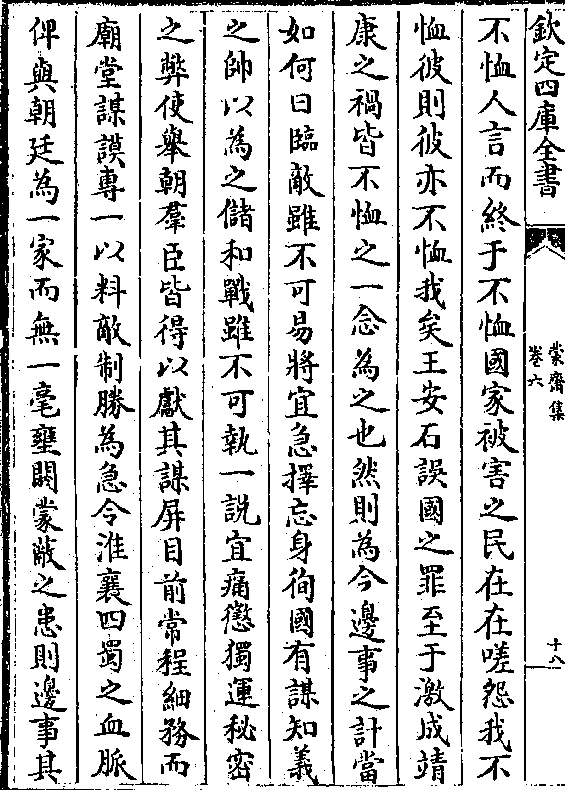 欽定四庫全書
蒙齋集
卷六
十八
不恤人言而終于不恤國家被害之民在在嗟怨我不
恤彼則彼亦不恤我矣王安石誤國之罪至于激成靖
康之禍皆不恤之一念為之也然則為今邊事之計當
如何曰臨敵雖不可易將宜急擇忘身徇國有謀知義
之帥以為之儲和戰雖不可執一説宜痛懲獨運秘密
之弊使舉朝羣臣皆得以獻其謀屏目前常程細務而
廟堂謀謨専一以料敵制勝為急令淮襄四蜀之血脈
俾與朝廷為一家而無一毫壅閼蒙蔽之患則邊事其